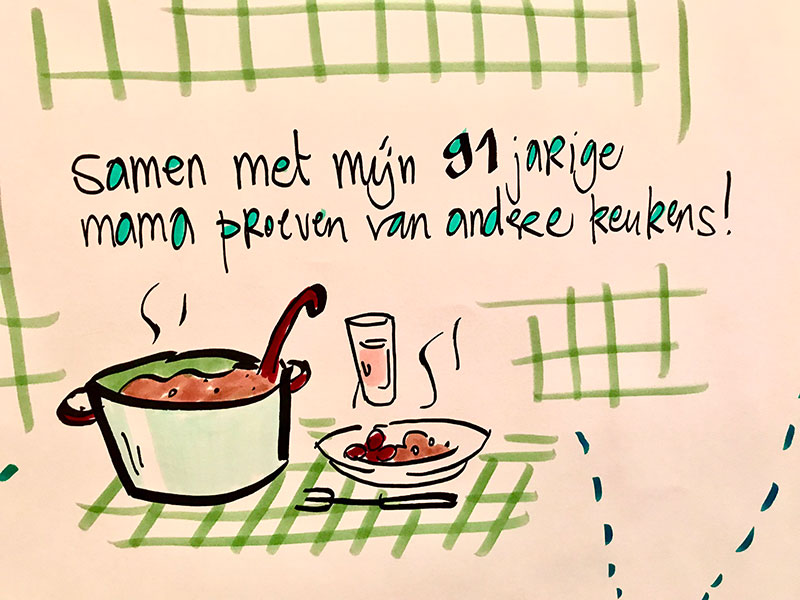 samen met mijn 91 jarige
mama proeven van andere keukens!